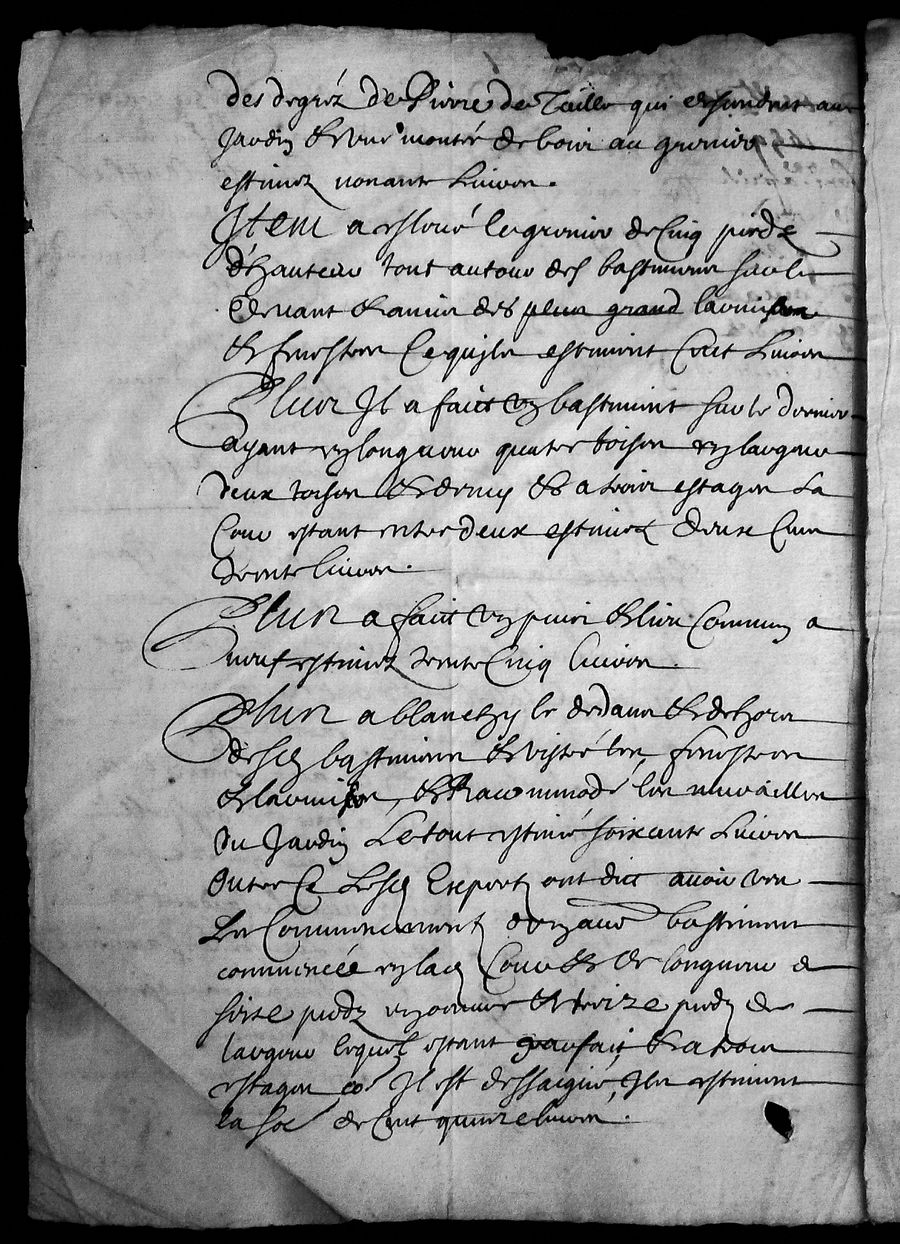 des degréz de Pierre de Taille qui dessendent au
Jardin et une montée de bois au grenier
estimez nonante Livres.
Item a eslevé le grenier de Cinq piedz
d'hauteur tout autour des bastimens sur le
devant et aussi des plus grand
et fenestres Ce qu'ilz estiment Cent Livres
Plus Il a faict un bastiment sur le dernier
ayant en longueur quatre toises en largeur
deux toises et demy et a trois estages La
Cour estant entre deux estimez douze Cens
trente livres.
Plus a faict un puis et lieu Commun a
neuf estimez trente Cinq livres.
Plus a blanchy le dedans et dehors
desd bastimens et les fenestres
et et racommodé les murailles
du Jardin Le tout estimé soixante Livres
Outre Ce Lesd Expertz ont dict avoir veu
Le Commencement d'un autre bastiment
commencée en lad Cour et de longueur de
seize piedz en oeuvre et treize piedz de
largeur lequel estant parfait et a trois
estages Co^e Il est dessaigné, Ilz estiment
la so^e de Cent quinze livres.